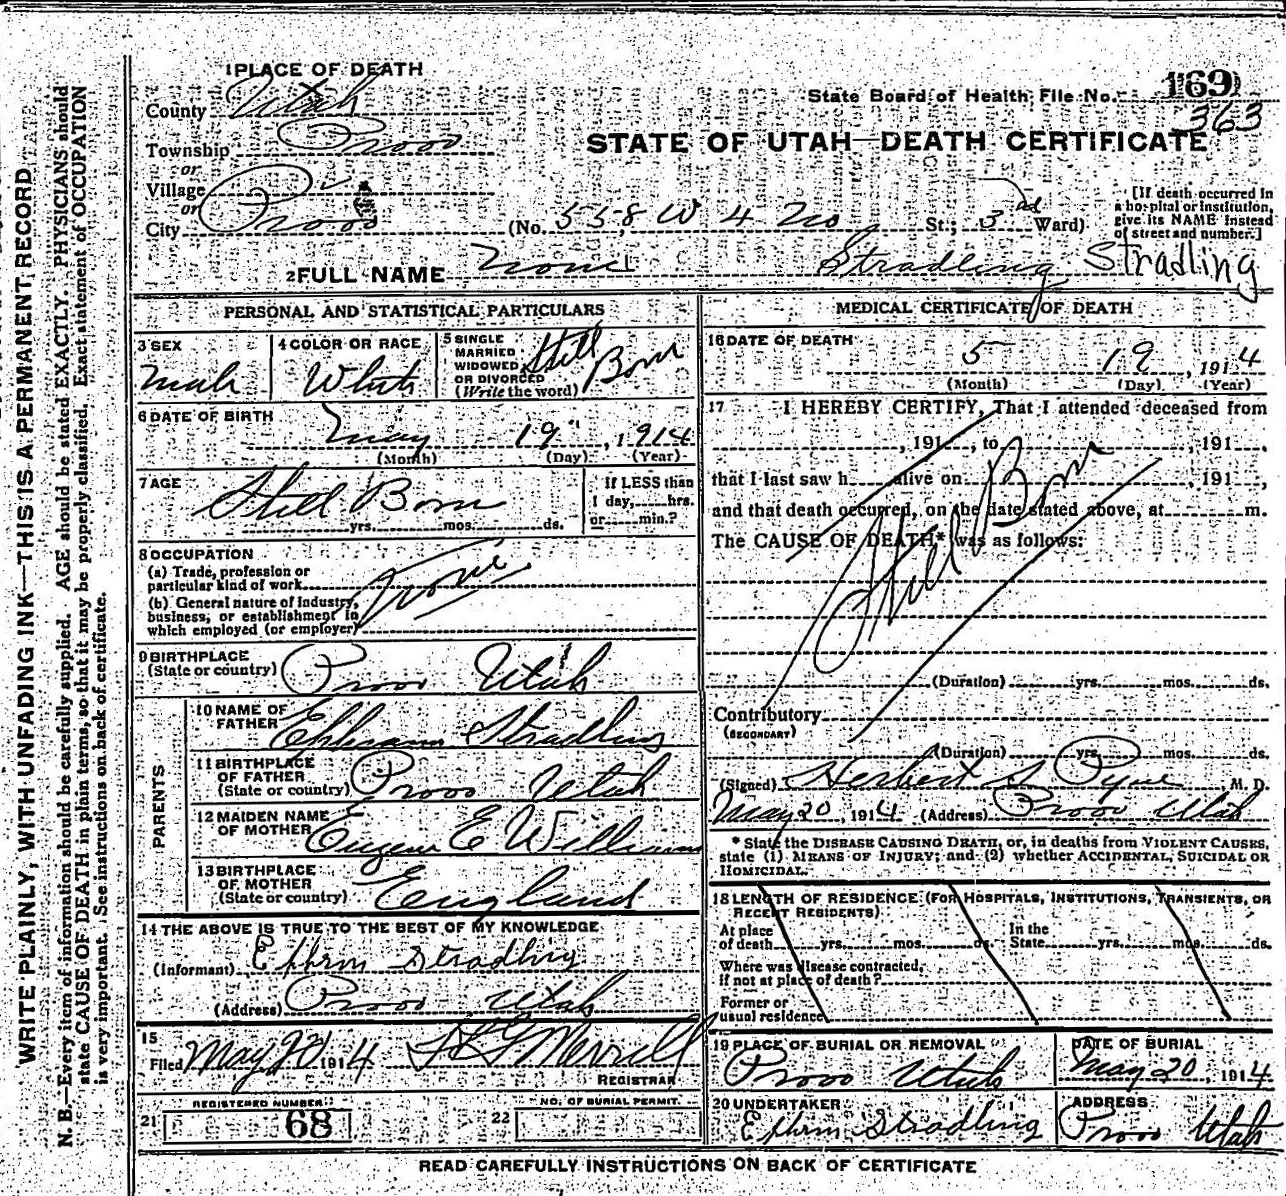 1 PLACE OF DEATH
County Utah
Township Provo
or
Village
or
City Provo
State Board of Health File No. 169
363
STATE OF UTAH—DEATH CERTIFICATE
(No. 558 W 4 No St.; 3rd Ward)
[If death occurred in
a hospital or institution,
give its NAME instead
of street and number.]
2 FULL NAME None Stradling Stradling
PERSONAL AND STATISTICAL PARTICULARS
3 SEX
Male
4 COLOR OR RACE
White
5 SINGLE
MARRIED
WIDOWED
OR DIVORCED
(Write the word)
Still Born
6 DATE OF BIRTH
May 19", 1914
(Month) (Day) (Year)
7 AGE
Still Born
yrs. mos. ds.
If LESS than
1 day, hrs.
or min.?
8 OCCUPATION
(a) Trade, profession or
particular kind of work
(b) General nature of industry,
business, or establishment in
which employed (or employer)
None
9 BIRTHPLACE
(State or country)
Provo Utah
PARENTS
10 NAME OF
FATHER
Stradling
11 BIRTHPLACE
OF FATHER
(State or country)
Provo Utah
12 MAIDEN NAME
OF MOTHER
E Williams
13 BIRTHPLACE
OF MOTHER
(State or country)
England
14 THE ABOVE IS TRUE TO THE BEST OF MY KNOWLEDGE
(Informant) Ephrm Stradling
(Address) Provo Utah
15
Filed May 20 1914 Merrell
REGISTRAR
21 REGISTERED NUMBER
68
22 NO. OF BURIAL PERMIT
MEDICAL CERTIFICATE OF DEATH
16 DATE OF DEATH
5 19, 1914
(Month) (Day) (Year)
17 I HEREBY CERTIFY, That I attended deceased from
, 191 , to , 191 ,
that I last saw h alive on , 191 ,
and that death occurred, on the date stated above, at m.
The CAUSE OF DEATH* was as follows:
Still Born
(Duration) yrs. mos. ds.
Contributory
(SECONDARY)
(Duration) yrs. mos. ds.
(Signed) Herbert S. Pyne M. D.
May 20, 1914 (Address) Provo Utah
* State the DISEASE CAUSING DEATH, or, in deaths from VIOLENT CAUSES,
state (1) MEANS OF INJURY; and (2) whether ACCIDENTAL, SUICIDAL OR
HOMICIDAL.
18 LENGTH OF RESIDENCE (FOR HOSPITALS, INSTITUTIONS, TRANSIENTS, OR
RECENT RESIDENTS)
At place
of death yrs. mos. ds.
In the
State yrs. mos. ds.
Where was disease contracted,
if not at place of death?
Former or
usual residence
19 PLACE OF BURIAL OR REMOVAL
Provo Utah
DATE OF BURIAL
May 20, 1914
20 UNDERTAKER
Ephrm Stradling
ADDRESS
Provo Utah
READ CAREFULLY INSTRUCTIONS ON BACK OF CERTIFICATE
WRITE PLAINLY, WITH UNFADING INK—THIS IS A PERMANENT RECORD
N. B.—Every item of information should be carefully supplied. AGE should be stated EXACTLY. PHYSICIANS should
state CAUSE OF DEATH in plain terms, so that it may be properly classified. Exact statement of OCCUPATION
is very important. See instructions on back of certificate.